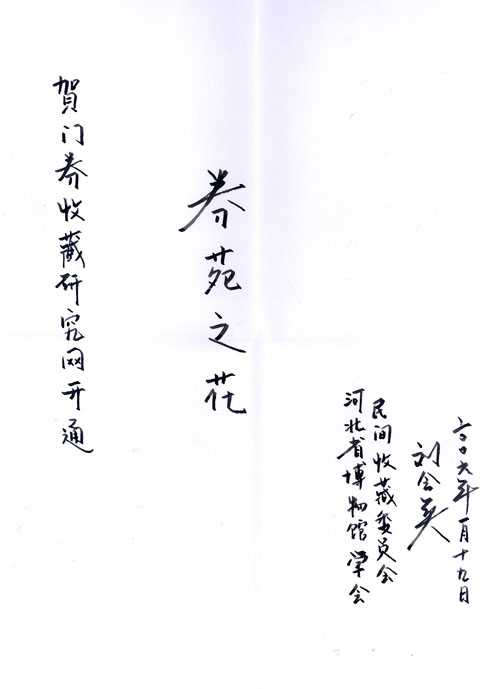 賀门券收藏研究网开通
券苑之花
河北省博物馆学会
民间收藏委员会
刘会英
二〇〇六年一月十九日